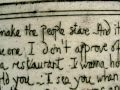 make the people stare. And it
me one. I don't approve of
a restaurant I wanna ho
you I see you when